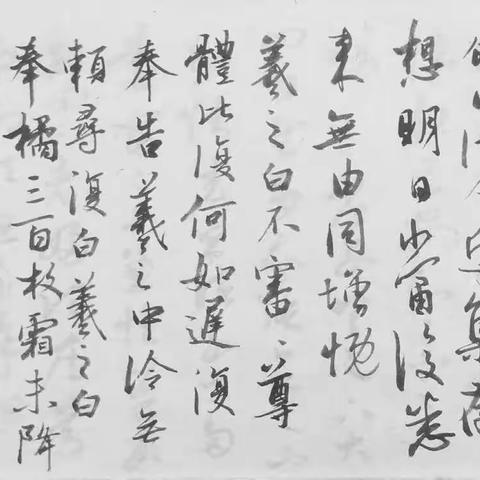 集存
想明日當復悉
來無由同增慨
羲之白不審〻尊
體比復何如遲復
奉告羲之中冷無
賴尋復白羲之白
奉橘三百枚霜未降